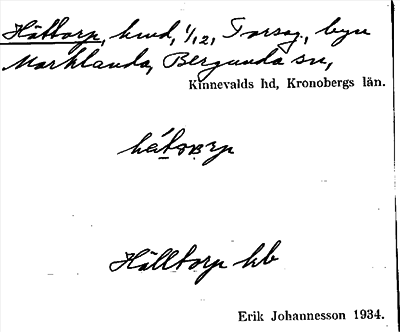 Hättorp, hmd, 1/12, Torsag., byn
Marklanda, Bergunda sn,
Kinnevalds hd, Kronobergs län.
Hälltorp kb
Erik Johannesson 1934.